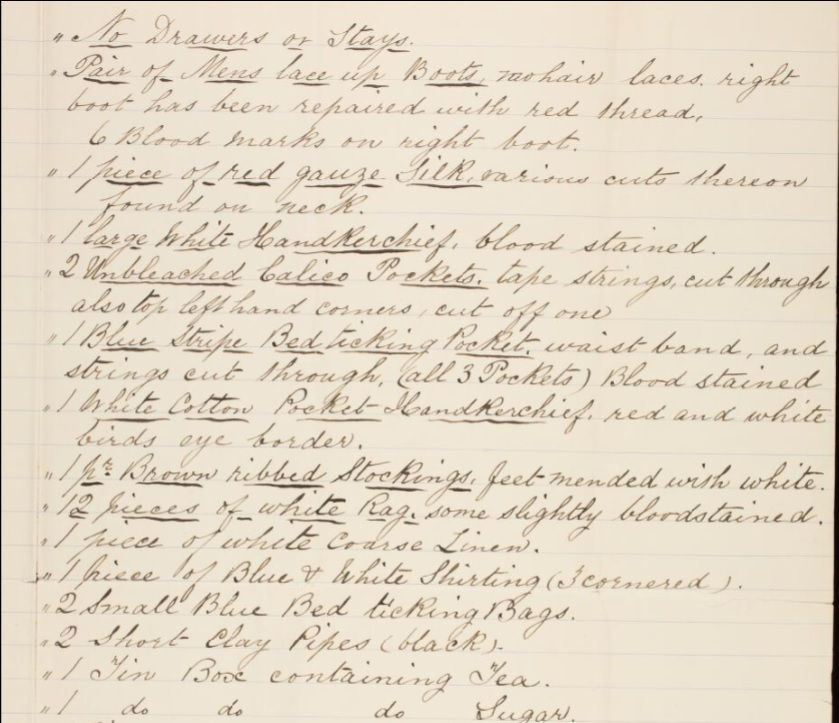 " No Drawers or Stays.
" Pair of Mens lace up Boots, mohair laces. right
boot has been repaired with red thread,
6 Blood marks on right boot.
" 1 piece of red gauze Silk, various cuts thereon
found on neck.
" 1 large White Handkerchief, blood stained.
" 2 Unbleached Calico Pockets, tape strings, cut through
also top left hand corners, cut off one
" 1 Blue Stripe Bed ticking Pocket, waist band, and
strings cut through, (all 3 Pockets) Blood stained
" 1 White Cotton Pocket Handkerchief, red and white
birds eye border.
" 1 pr. Brown ribbed Stockings, feet mended with white.
" 12 pieces of white Rag, some slightly bloodstained.
" 1 piece of white coarse Linen.
" 1 piece of Blue & White Shirting (3 cornered).
" 2 Small Blue Bed ticking Bags.
" 2 Short Clay Pipes (black).
" 1 Tin Box containing Tea.
" 1 do do do Sugar.